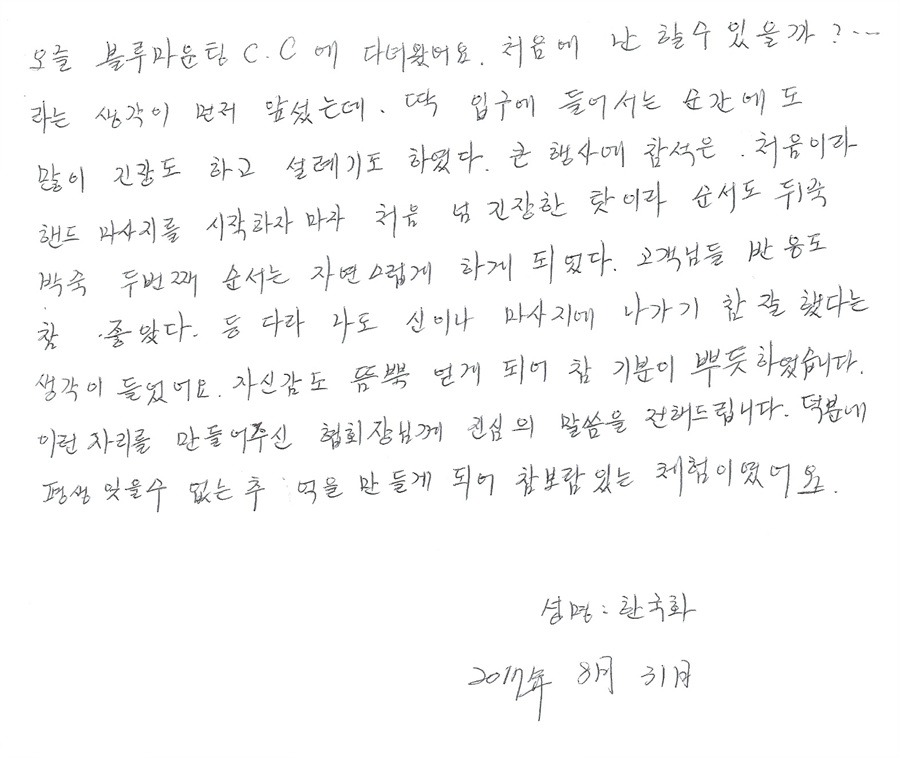 오늘 블루마운팅 C.C에 다녀왔어요. 처음에 난 할수 있을까?...
라는 생각이 먼저 앞섰는데. 딱 입구에 들어서는 순간에도
많이 긴장도 하고 설레기도 하였다. 큰 행사에 참석은 . 처음이라
핸드 마사지를 시작하자 마자 처음 넘 긴장한 탓이라 순서도 뒤죽
박죽 두번째 순서는 자연스럽게 하게 되었다. 고객님들 반응도
참 좋았다. 등 다라 나도 신이나 마사지에 나가기 참 잘 했다는
생각이 들었어요. 자신감도 뜸뿍 얻게 되어 참 기분이 뿌듯하였습니다.
이런 자리를 만들어주신 협회장님께 진심의 말씀을 전해드립니다. 덕분에
평생 잊을수 없는 추억을 만들게 되어 참보람있는 체험이였어요.
성명: 한국화
2017年 8月 31日